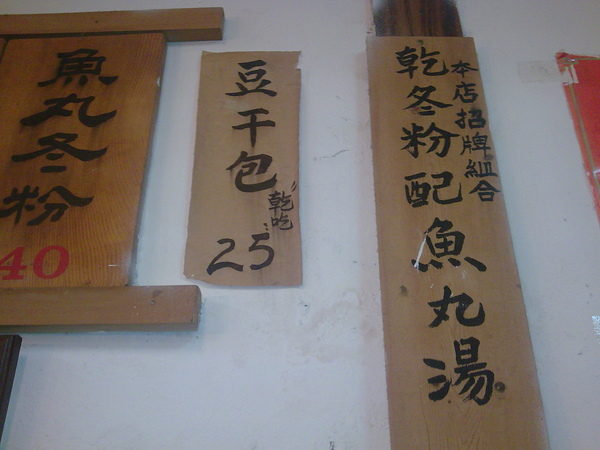 魚丸冬粉
40
豆干包
乾吃
25
本店招牌組合
乾冬粉配魚丸湯